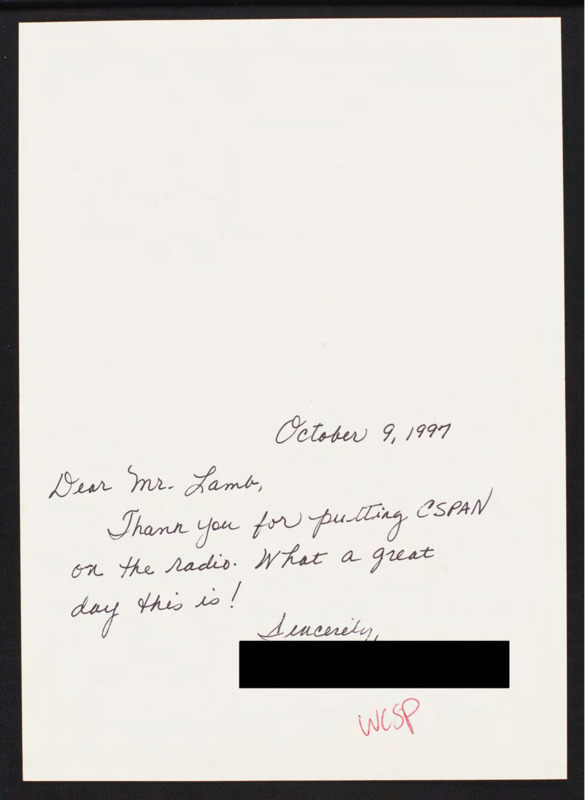 October 9, 1997
Dear Mr. Lamb,
Thank you for putting CSPAN
on the radio. What a great
day this is!
Sincerely,
WCSP